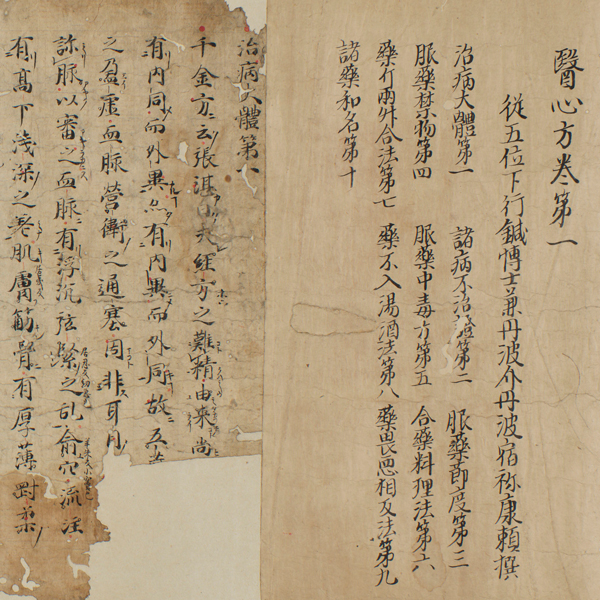 醫心方巻第一
従五位下行鍼博士兼丹波介丹波宿祢康頼撰
治病大體第一 諸病不治證第二 服藥節度第三
服藥禁物第四 服藥中毒方第五 合藥料理法第六
藥斤兩升合法第七 藥不入湯酒法第八 藥畏惡相反法第九
諸藥和名第十
治病大體第一
千金方云張湛曰夫經方之難精由来尚
有内同而外異亦有内異而外同故五
之盈虛血脉營衛之通塞固非耳目
診脉以審之而血脉有浮沉弦緊之乱俞穴流注
有髙下浅深之差肌膚筋骨有厚薄剛柔